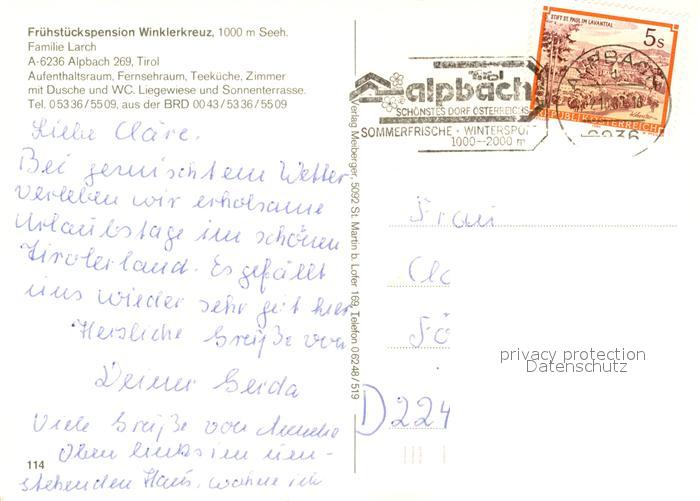 Frühstückspension Winklerkreuz, 1000 m Seeh.
Familie Larch
A-6236 Alpbach 269, Tirol
Aufenthaltsraum, Fernsehraum, Teeküche, Zimmer
mit Dusche und WC. Liegewiese und Sonnenterrasse.
Tel. 05336/5509, aus der BRD 0043/5336/5509
Liebe Cläre.
Bei gemischtem Wetter
verleben wir erholsame
Urlaubstage im schönen
Tirolerland. Es gefällt
uns wieder sehr gut hier
Herzliche Grüße von
Deiner Gerda
Viele Grüße von
Oben links im
stehenden Haus, wohne ich
114
Verlag Melberger, 5092 St. Martin b. Lofer 169, Telefon 06248/519
Tirol
alpbach
SCHÖNSTES DORF ÖSTERREICHS
SOMMERFRISCHE · WINTERSPORT
1000-2000 m
STIFT ST. PAUL IM LAVANTTAL
5s
REPUBLIK ÖSTERREICH
6236
Frau
D 224
privacy protection
Datenschutz